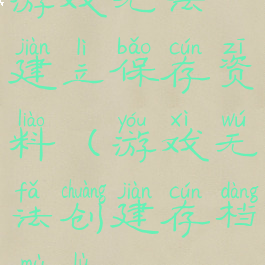 游戏无法
jiàn lì bǎo cún zī
建立保存资
liào yóu xì wú
料（游戏无
fǎ chuàng jiàn cún dàng
法创建存档
mù lù